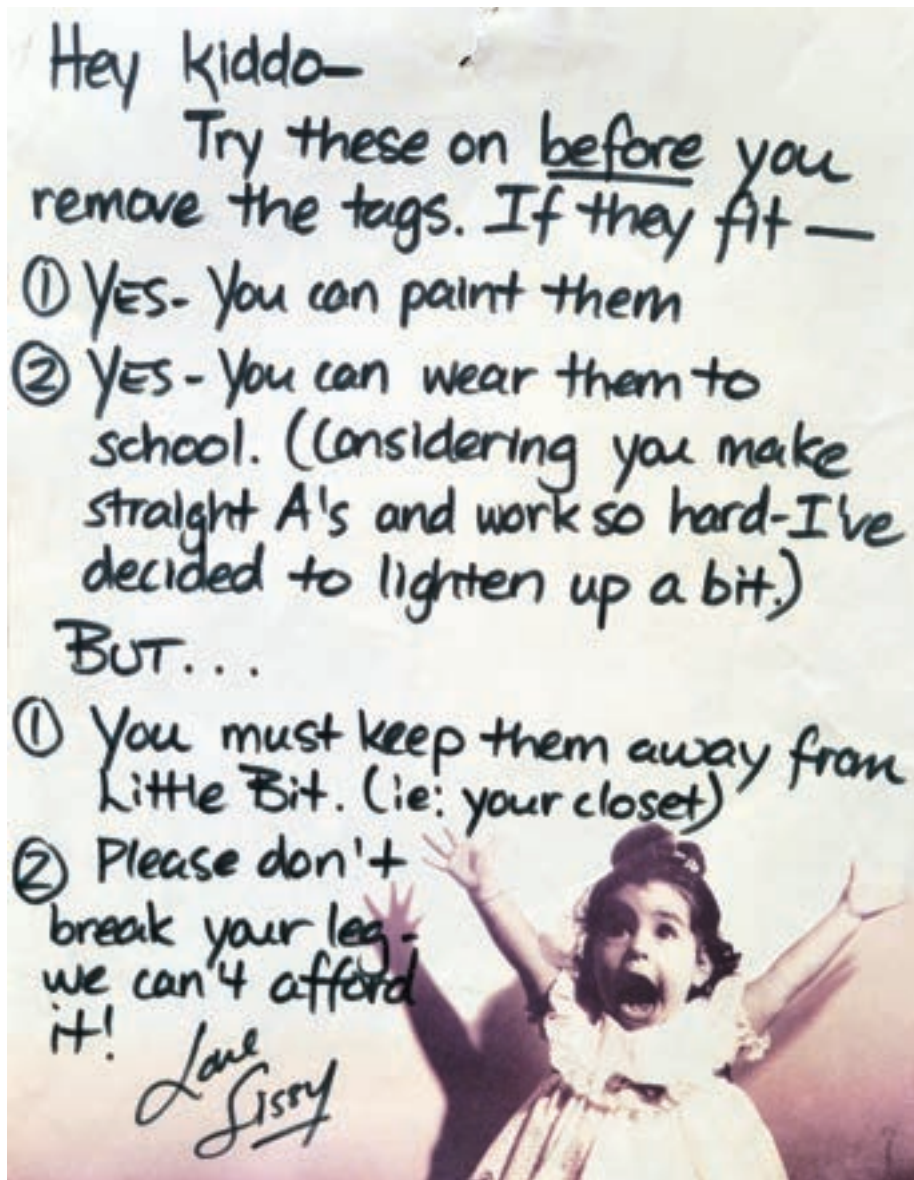 Hey kiddo—
Try these on before you
remove the tags. If they fit —
① YES- You can paint them
② YES - You can wear them to
school. (Considering you make
straight A's and work so hard-I've
decided to lighten up a bit.)
BUT...
① You must keep them away from
Little Bit. (ie: your closet)
② Please don't
break your leg-
we can't afford
it!
Love
Sissy